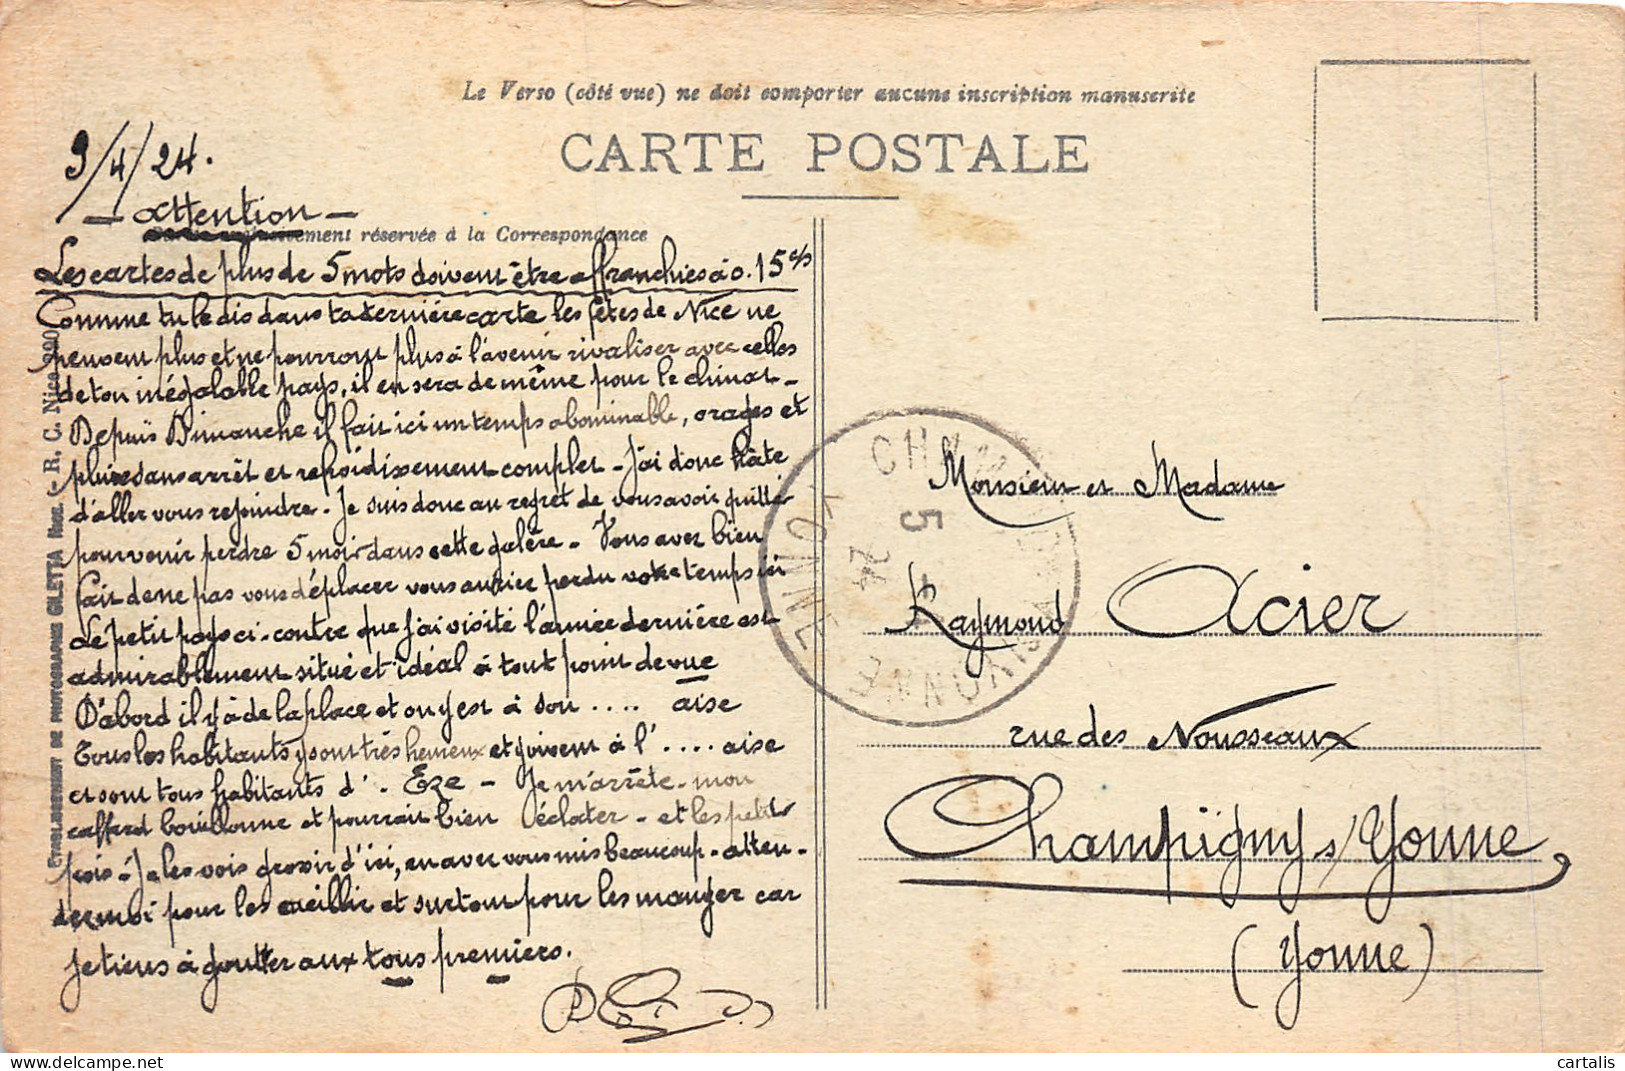 Le Verso (côté vue) ne doit comporter aucune inscription manuscrite
CARTE POSTALE
9/4/24.
- Attention -
réservée à la Correspondance
Les cartes de plus de 5 mots doivent être affranchies à 0.15 cs
Comme tu le dis dans ta dernière carte les fêtes de Nice ne
peuvent plus et ne pourront plus à l'avenir rivaliser avec celles
de ton inégalable pays, il en sera de même pour le climat -
Depuis Dimanche il fait ici un temps abominable, orages et
pluie sans arrêt et refroidissement complet - J'ai donc hâte
d'aller vous rejoindre - Je suis donc au regret de vous avoir quitté
pour venir perdre 5 mois dans cette galère - Vous avez bien
fait de ne pas vous déplacer vous auriez perdu votre temps ici
Le petit pays ci-contre que j'ai visité l'année dernière est
admirablement situé et idéal à tout point de vue
D'abord il y a de la place et on y est à son .... aise
Tous les habitants y sont très heureux et jouissent à l' .... aise
et sont tous habitants d' . Eze - Je m'arrête - mon
caffard bouillonne et pourrait bien éclater - et les petits
pois - Je les vois grossir d'ici, en avez vous mis beaucoup - atten-
dez moi pour les cueillir et surtout pour les manger car
je tiens à goutter aux tous premiers.
ETABLISSEMENT DE PHOTOGRAPHIE GILETTA - R. C. Nice
CH
5
24
YONNE
YONNE
Monsieur et Madame
Raymond Acier
rue des Nousseaux
Champigny s/ Yonne
(Yonne)
cartalis